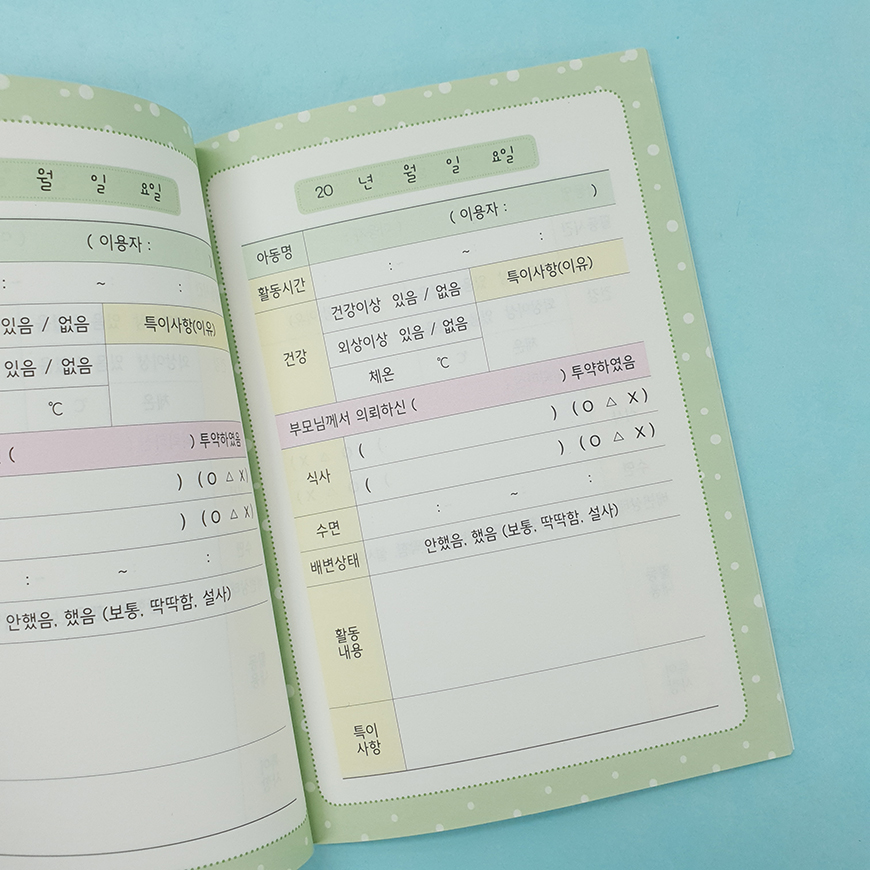 월 일 요일
( 이용자 :
: ~ :
있음 / 없음 특이사항(이유)
있음 / 없음
℃
( ) 투약하였음
) ( O △ X )
) ( O △ X )
: ~ :
안했음, 했음 (보통, 딱딱함, 설사)
20 년 월 일 요일
아동명 ( 이용자 : )
활동시간 : ~ :
건강 건강이상 있음 / 없음 특이사항(이유)
외상이상 있음 / 없음
체온 ℃
부모님께서 의뢰하신 ( ) 투약하였음
식사 ( ) ( O △ X )
( ) ( O △ X )
수면 : ~ :
배변상태 안했음, 했음 (보통, 딱딱함, 설사)
활동
내용
특이
사항